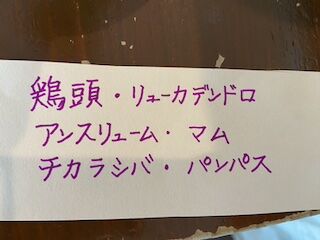 鶏頭・リューカデンドロ
アンスリューム・マム
チカラシバ・パンパス